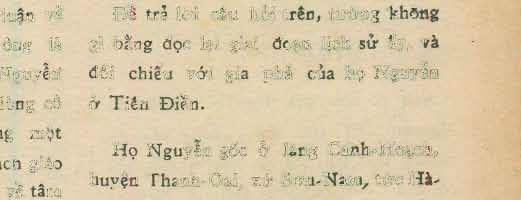 luận về
ông là
Nguyễn
dòng cô
ng một
ách giáo
về tâm
Để trả lời câu hỏi trên, tưởng không
gì bằng đọc lại giai đoạn lịch sử ấy, và
đối chiếu với gia phả của họ Nguyễn
ở Tiên Điền.
Họ Nguyễn gốc ở làng Canh-Hoạch,
huyện Thanh-Oai, xứ Sơn-Nam, tức Hà-